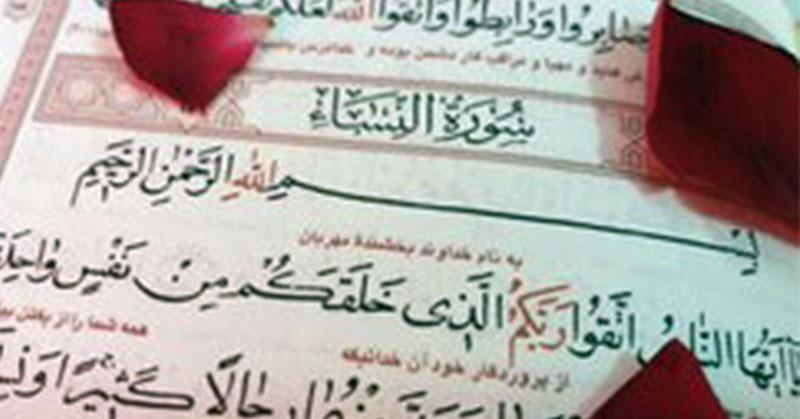 صَابِرُوا وَرَابِطُوا وَاتَّقُوا اللَّهَ لَعَلَّكُمْ
سُورَةُ النِّسَاءِ
بِسْمِ اللَّهِ الرَّحْمَٰنِ الرَّحِيمِ
به نام خداوند بخشندهٔ مهربان
يَا أَيُّهَا النَّاسُ اتَّقُوا رَبَّكُمُ الَّذِي خَلَقَكُمْ مِنْ نَفْسٍ وَاحِدَةٍ
از پروردگار خود آن خدائیکه همه شما را از یکتن
رِجَالًا كَثِيرًا وَنِسَاءً